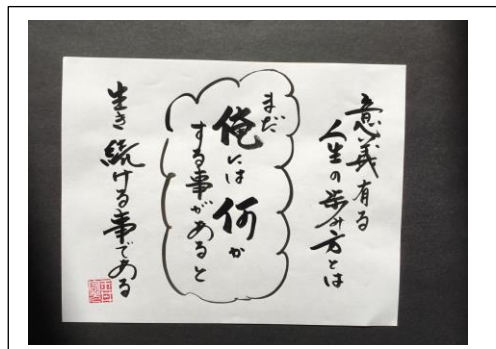 意義有る
人生の歩み方とは
まだ
俺には何か
する事があると
生き続ける事である